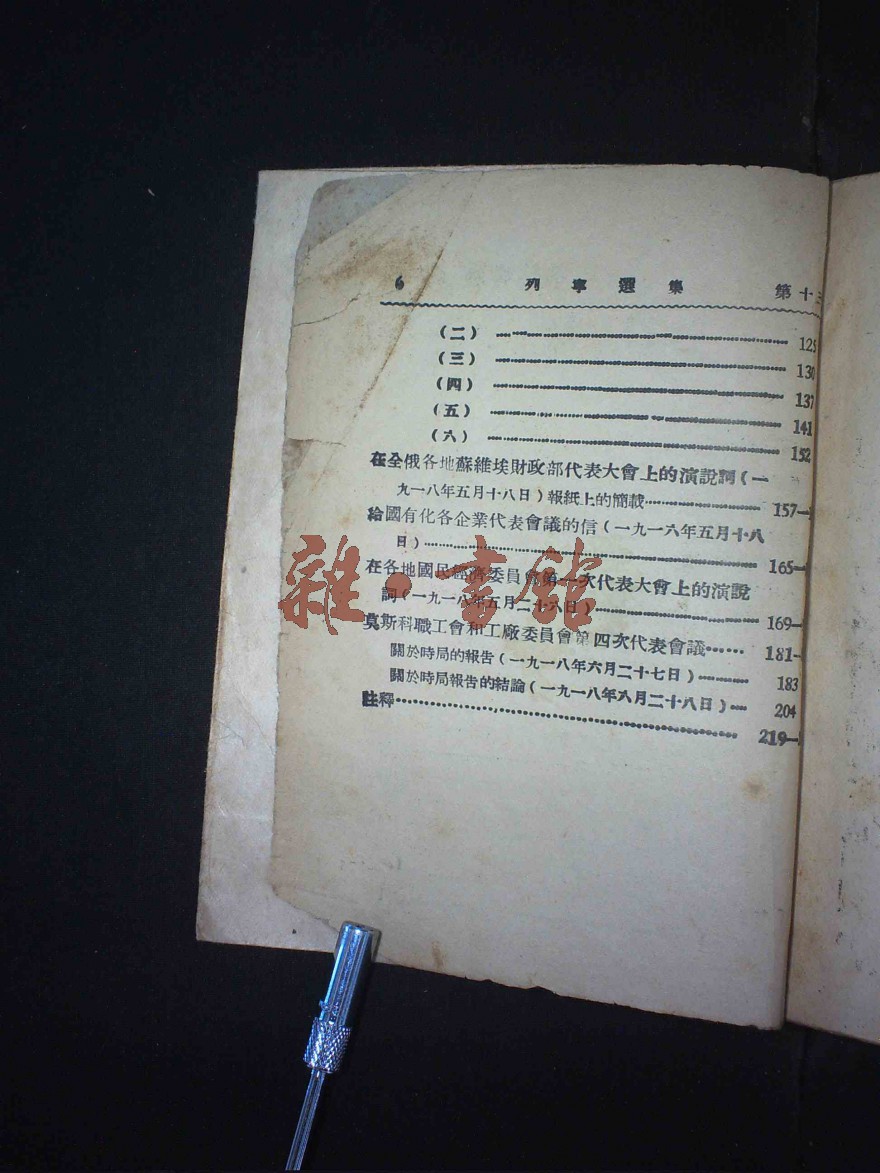 6 列寧選集 第十三
(二) 125
(三) 130
(四) 137
(五) 141
(六) 152
在全俄各地蘇維埃財政部代表大會上的演說詞(一
九一八年五月十八日)報紙上的簡載 157—
給國有化各企業代表會議的信(一九一八年五月十八
日) 165—
在各地國民經濟委員會第一次代表大會上的演說
詞(一九一八年五月二十六日) 169—
莫斯科職工會和工廠委員會第四次代表會議…… 181—
關於時局的報告(一九一八年六月二十七日) 183
關於時局報告的結論(一九一八年六月二十八日) 204
註釋 219—
雜·書館